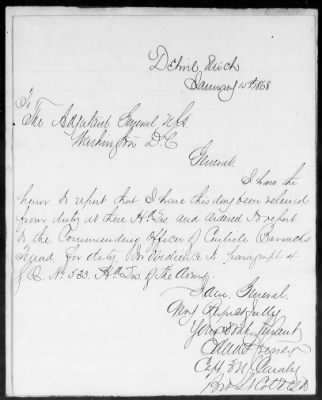 Detroit Mich
January 15th 1868
To
The Adjutant General U.S.A
Washington D.C
General
I have the
honor to report that I have this day been relieved
from duty at these Hd Qrs and ordered to report
to the Commanding Officer of Carlisle Barracks
for duty. In obedience to Paragraph 4
S.O. No 533 Hd Qrs of the Army.
I am General
Very Respectfully
Your Obdt Servant
Capt Cavalry